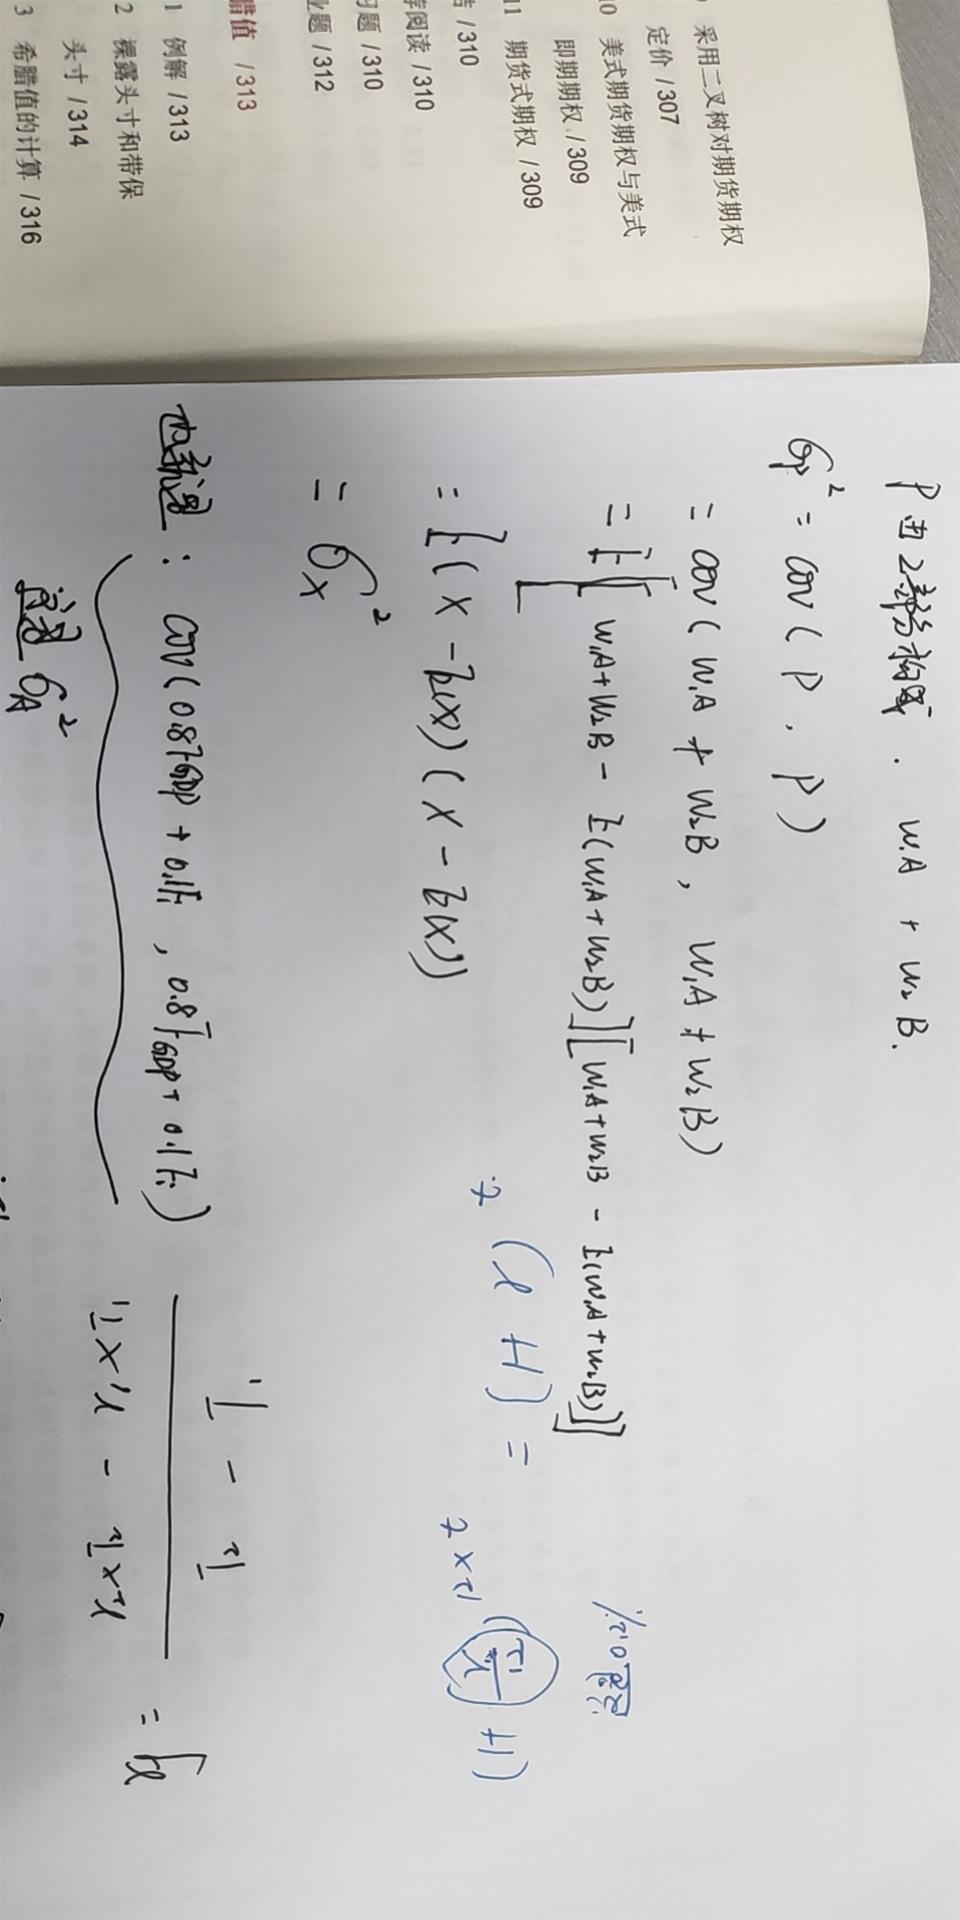 采用二叉树对期货期权
定价 /307
10 美式期货期权与美式
即期期权 /309
11 期货式期权 /309
结 /310
荐阅读 /310
习题 /310
业题 /312
腊值 /313
1 例解 /313
2 裸露头寸和带保
头寸 /314
3 希腊值的计算 /316
P由2部分构成. W₁A + W₂B.
σp² = cov(P, P)
= cov(W₁A + W₂B, W₁A + W₂B)
= E[[W₁A+W₂B - E(W₁A+W₂B)][W₁A+W₂B - E(W₁A+W₂B)]]
= E(X - E(X))(X - E(X))
= σx²
: cov(0.8FGDP + 0.1Fi, 0.8FGDP + 0.1Fi)
σA²
(1+r/12)^12×2 = (1+r)^2
0.2%
RF = (R₂×T₂ - R₁×T₁) / (T₂ - T₁)